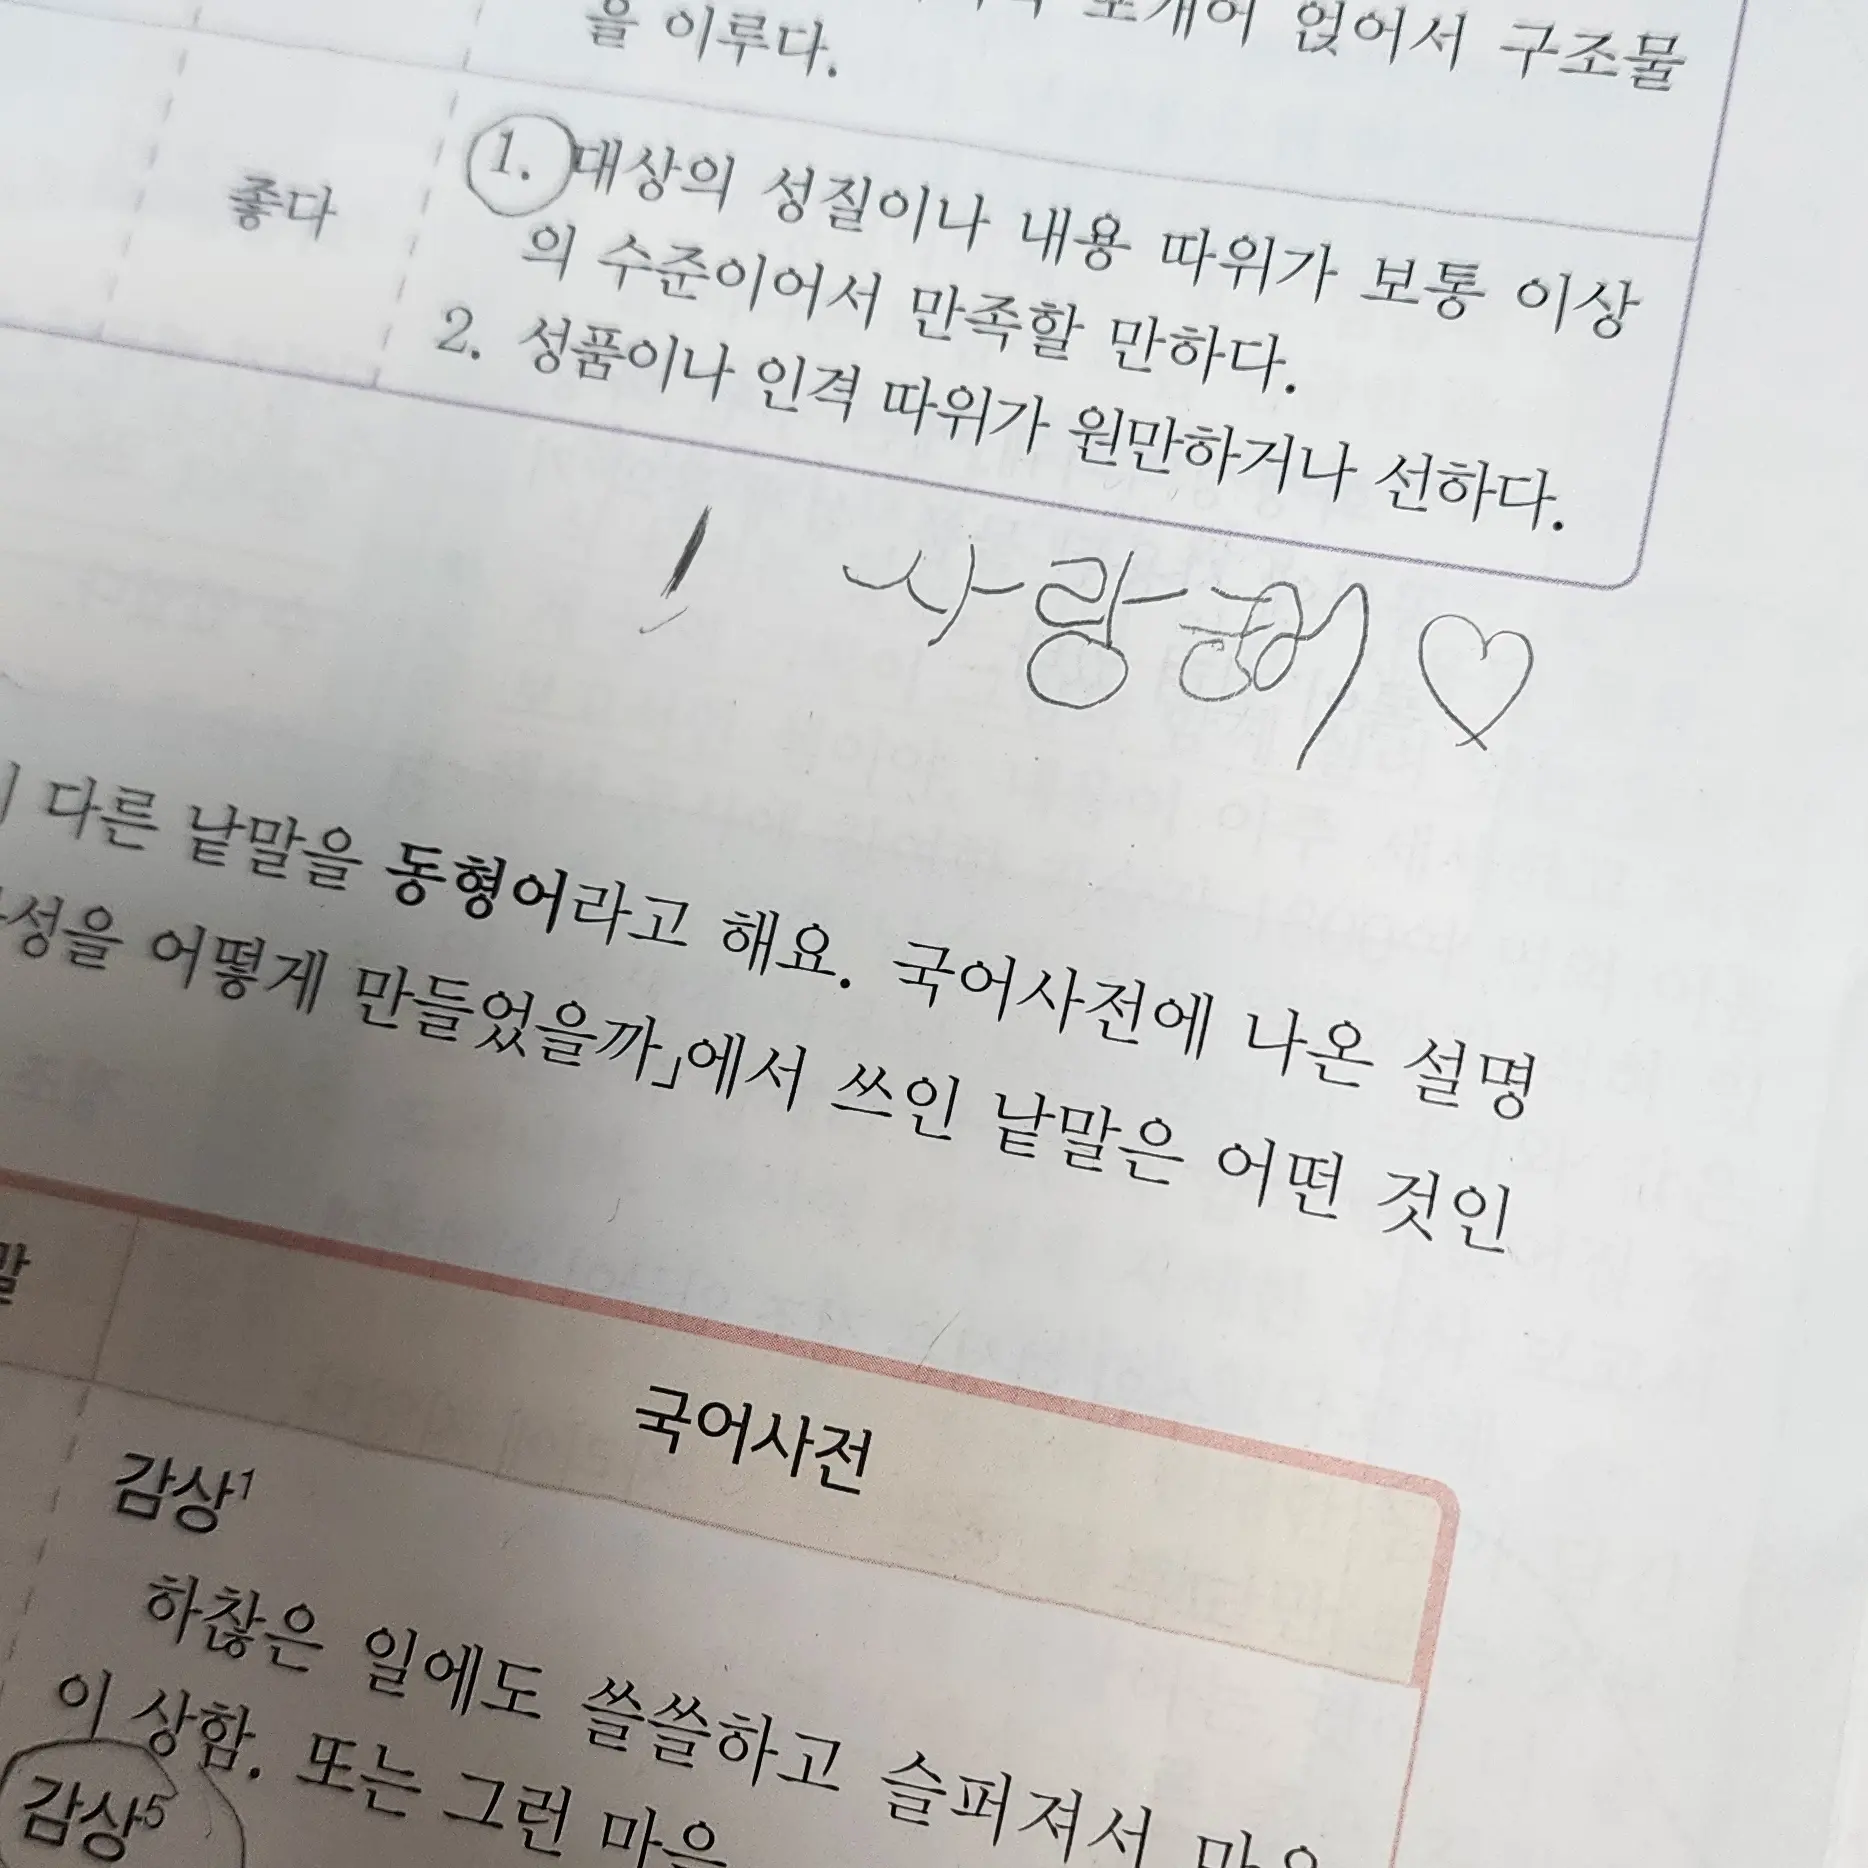 포개어 얹어서 구조물
을 이루다.
좋다
1. 대상의 성질이나 내용 따위가 보통 이상
의 수준이어서 만족할 만하다.
2. 성품이나 인격 따위가 원만하거나 선하다.
사랑해 ♡
다른 낱말을 동형어라고 해요. 국어사전에 나온 설명
성을 어떻게 만들었을까」에서 쓰인 낱말은 어떤 것인
말
국어사전
감상1
하찮은 일에도 쓸쓸하고 슬퍼져서 마음
이 상함. 또는 그런 마음.
감상5